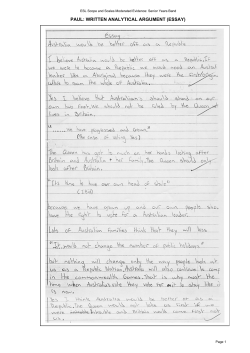 ESL Scope and Scales Moderated Evidence: Senior Years Band
PAUL: WRITTEN ANALYTICAL ARGUMENT (ESSAY)
Essay
Australia would be better off as a Republic
I believe Australia would be better off as a Republic. If
we were to become a Republic we would need an Austral
leader like an Aboriginal because they were the first
to own the whole of Australia.
Yes I believe that Australians should stand on our
own two feet. We should not be tied by the Queen
lives in Britain.
we have progressed and grown"
The Queen has got to much on her hands looking after
Britain and Australia + her family. The Queen should only
look after Britain.
"Its time to have our own head of state"
because we have grown up and our own people who
have the right to vote for a Australian leader.
Lots of Australian families think that they will lose
will not change the number of public holidays"
but nothing will change only the way people look at
us as a Republic Nation. Australia will also continue to comp
in the commonwealth Games. That is why must the
time when Australia vote they vote for it to stay like it
is.
Yes I think Australia would be better as a
Republic, the Queen would not take us first if we
were and Britain would come first not
us.
Page 1